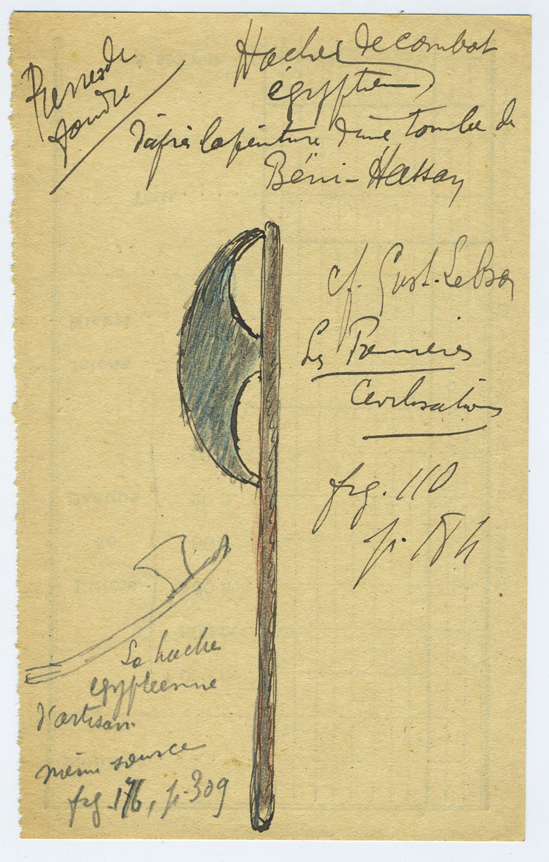 Pierres de
foudre
Haches de combat
égyptien
d'après la peinture d'une tombe de
Béni-Hassan
cf. Gust. Lebon
Les Premières
Civilisations
fig. 110
p. 184
La hache
égyptienne
d'artisan
même source
fig. 176, p. 309